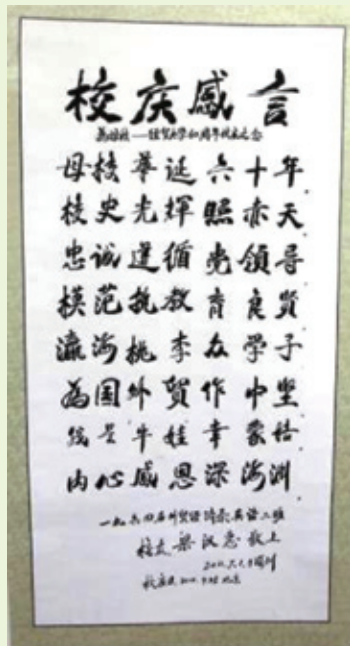 校庆感言
为母校——经贸大学60周年校庆之念
母校华诞六十年
校史光辉照赤天
忠诚遵循党领导
模范执教育良贤
瀛海桃李众学子
为国外贸作中坚
牛娃幸蒙培
内心感恩深海渊
一九六四届外贸英语二班
校友梁汉忠敬上